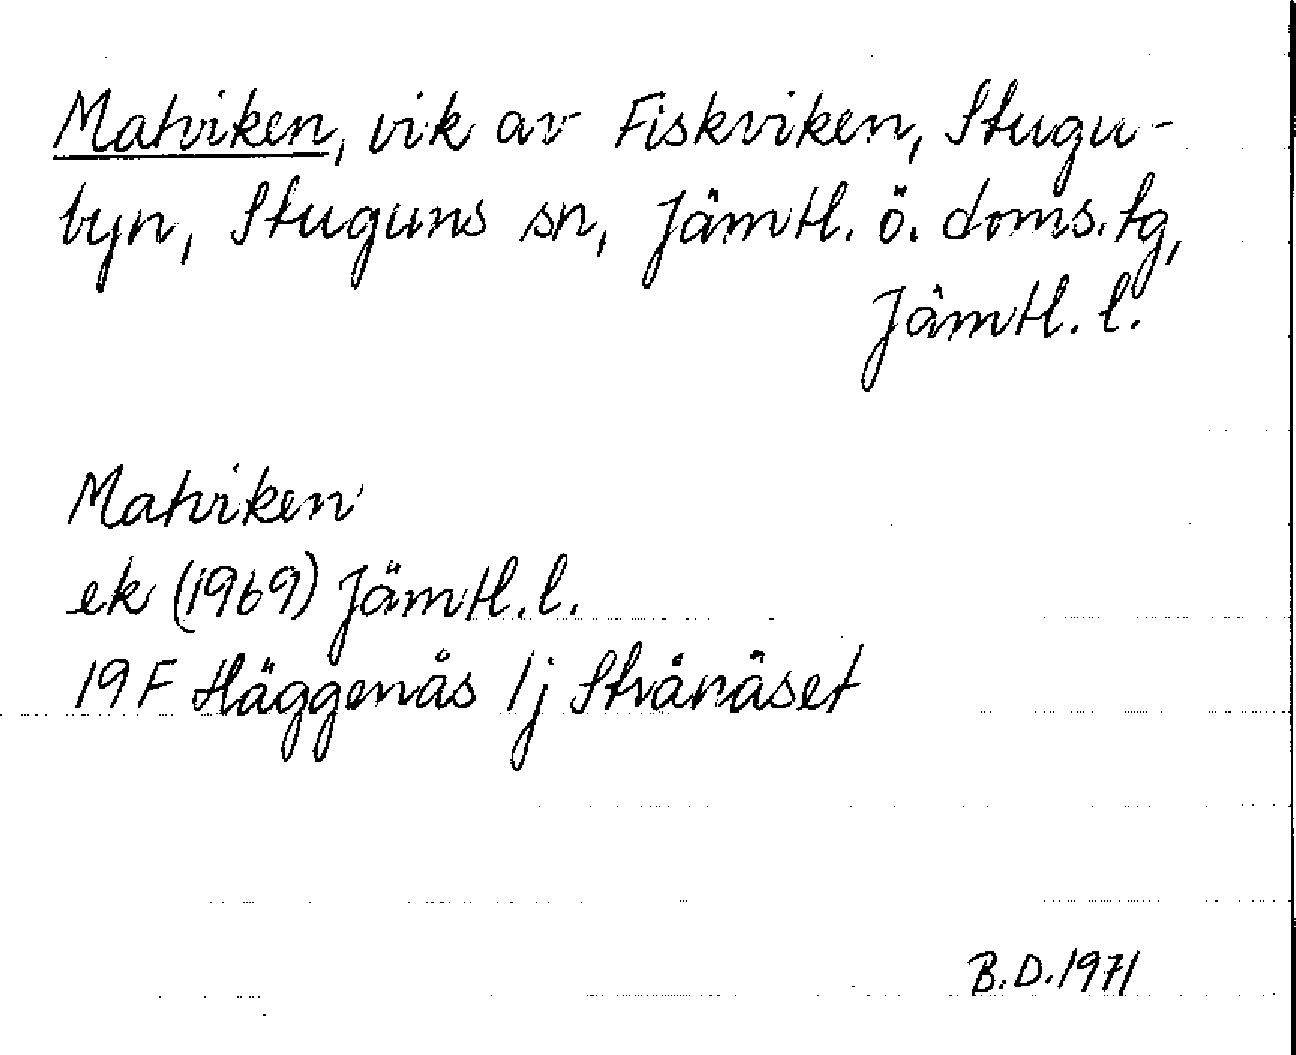 Matviken, vik av Fiskviken, Stugu-
byn, Stuguns sn, Jämtl. ö. doms. tg,
Jämtl. l.
Matviken
ek (1969) Jämtl. l.
19 F Häggenås 1j Strånäset
B.D. 1971